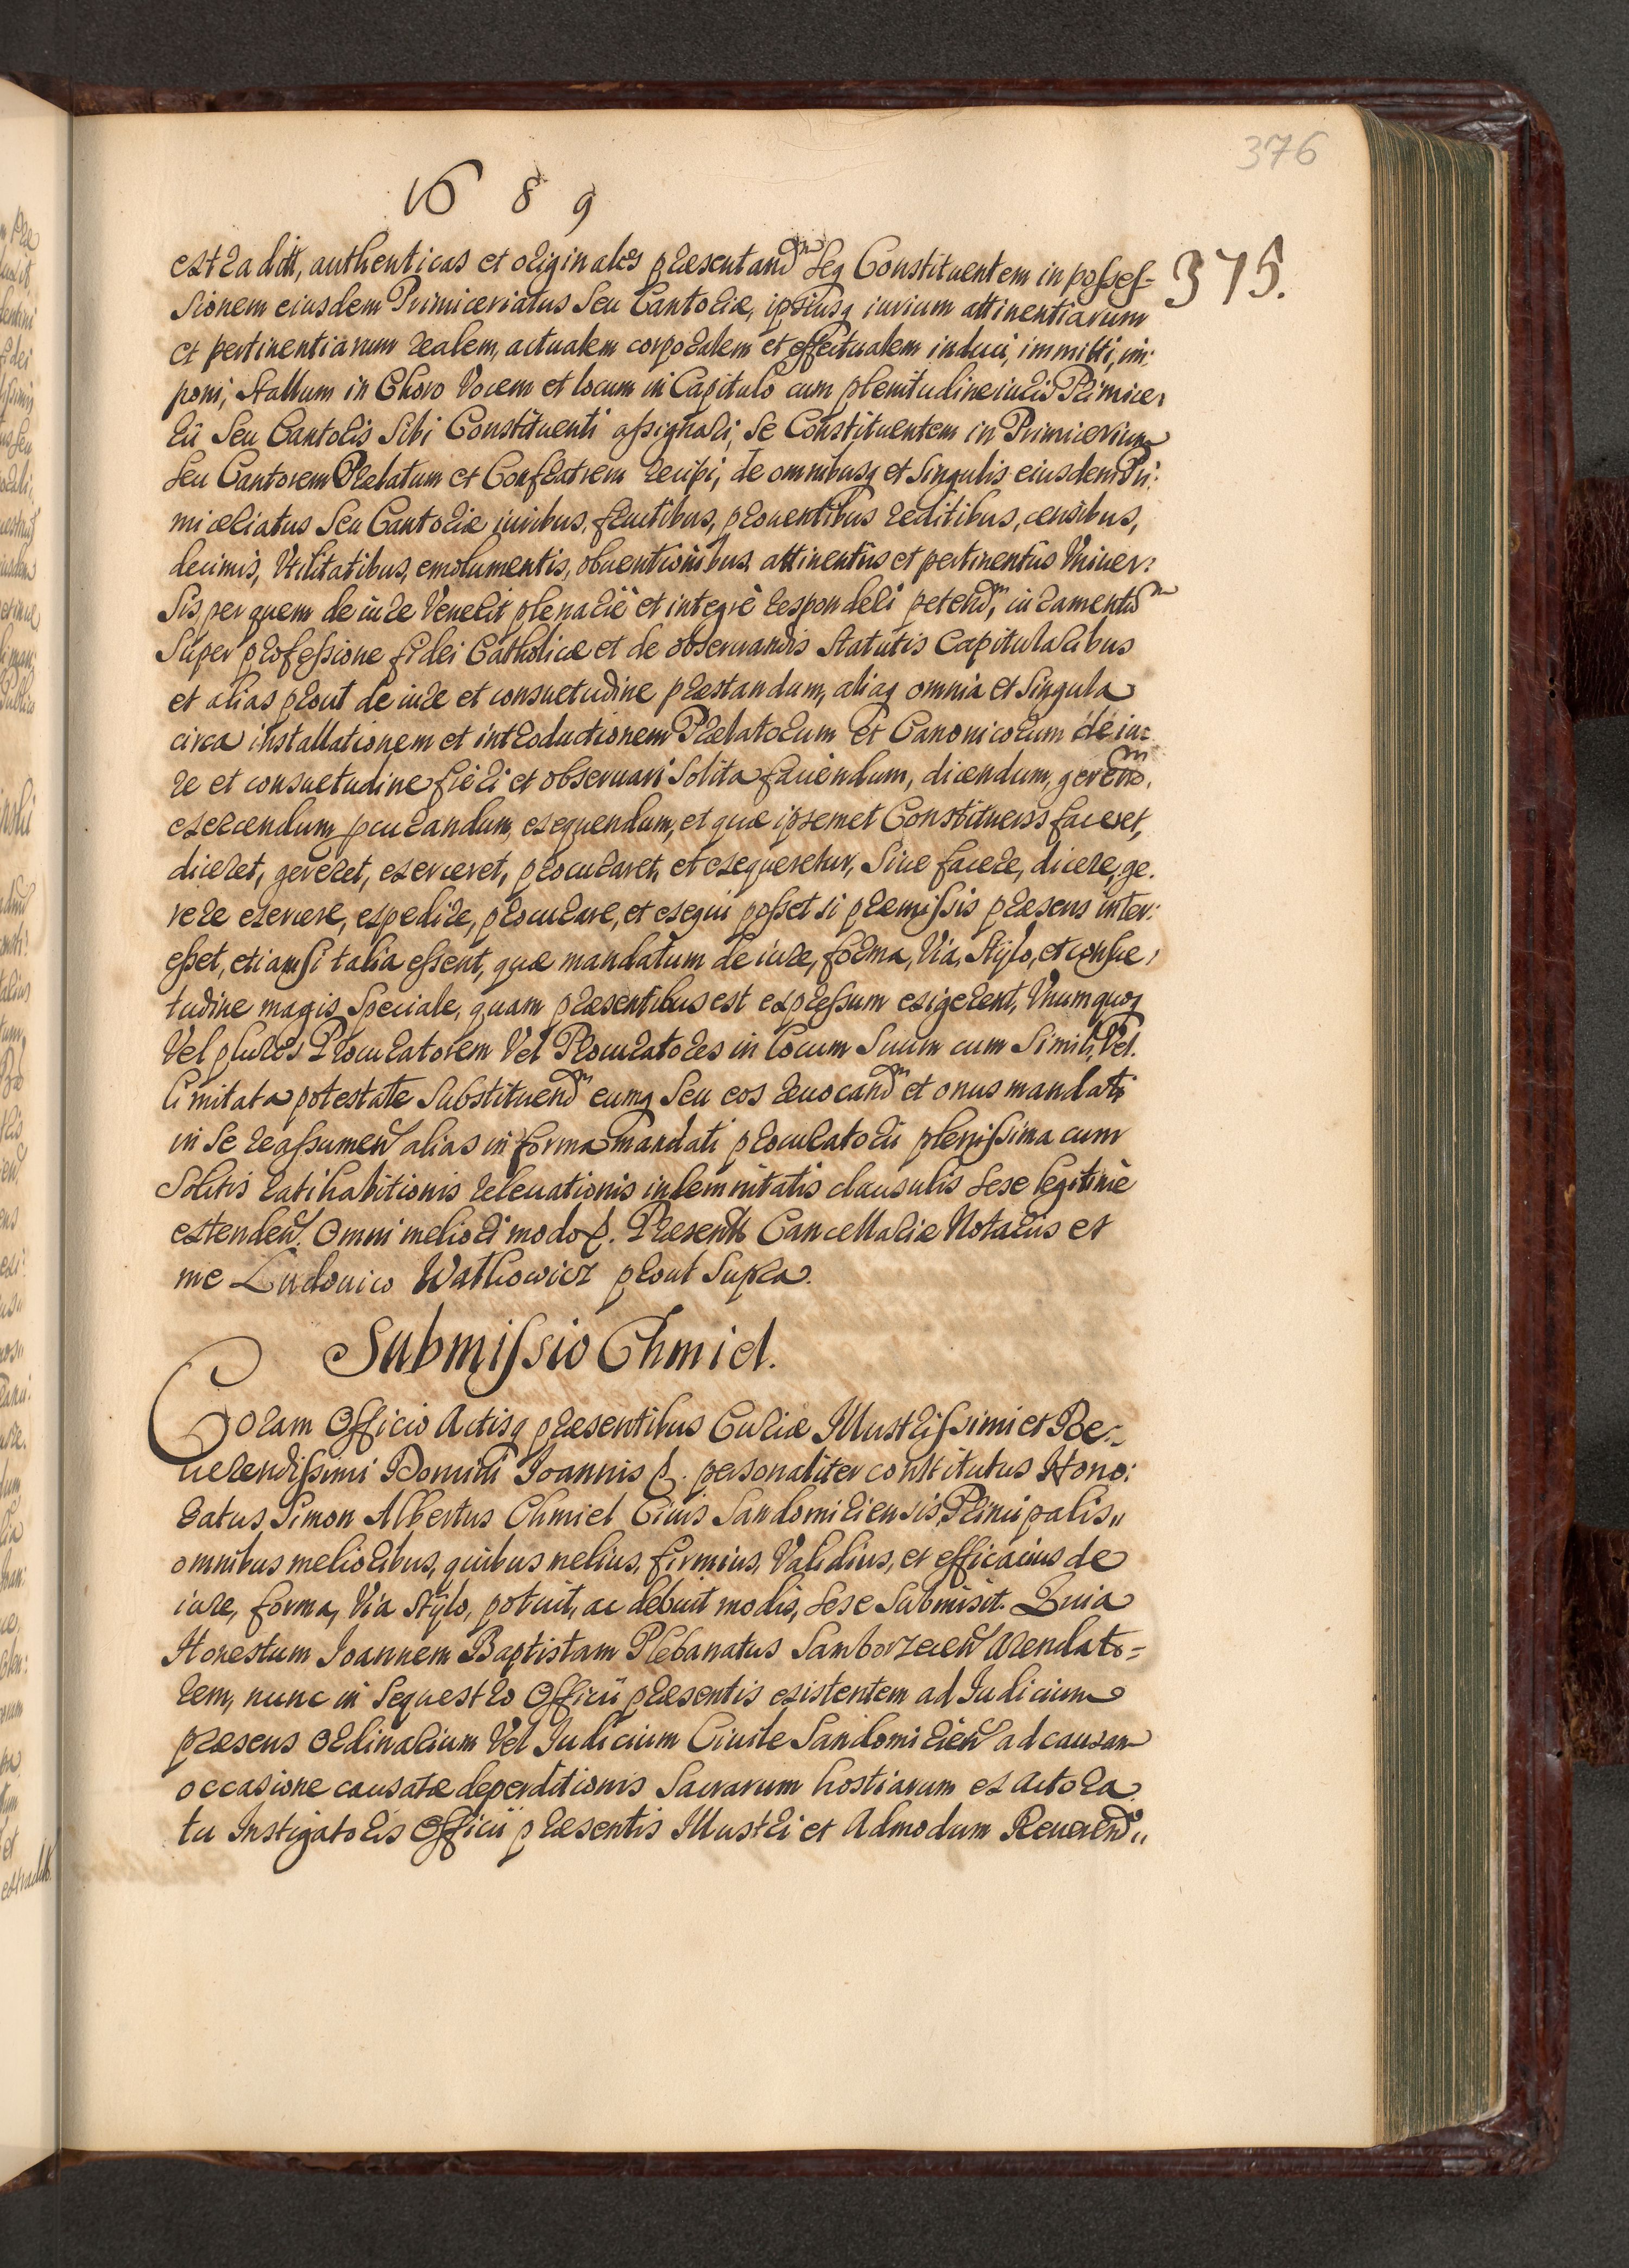 376
1689
375.
extraditt, authenticas et originales præsentandm seq Constituentem in posses=
sionem eiusdem Primiceriatus seu Cantoriæ, ipsiusq iurium attinentiarum
et pertinentiarum realem, actualem corporalem et effectualem induci, immitti, im:
poni, stallum in Choro Vocem et locum in Capitulo cum plenitudine iuris Primice,
rii seu Cantoris sibi Constituenti assignari, se Constituentem in Primicerium
seu Cantorem Prælatum et Confratrem recipi, de omnibusq et singulis eiusdem Pri:
miceriatus seu Cantoriæ iuribus, fructibus, prouentibus reditibus, censibus,
decimis, Vtilitatibus, emolumentis, obuentionibus, attinentiis et pertinentiis Vniuer:
sis, per quem de iure Venerit plenariè et integrè responderi petendm, iuramentum
super professione fidei Catholicæ et de obseruandis statutis Capitularibus
et alias prout de iure et consuetudine præstandum, aliaq omnia et singula
circa installationem et introductionem Prælatorum et Canonicorum de iu=
re et consuetudine fieri et obseruari solita faciendum, dicendum, gerendm,
exercendum, pcurandum, exequendum, et quæ ipsemet Constituens faceret,
diceret, gereret, exerceret, procuraret, et exequeretur, siue facere, dicere, ge.
rere exercere, expedire, procurare, et exequi posset si præmissis præsens inter:
esset, etiamsi talia essent, quæ mandatum de iure, forma, Via, stÿlo, et consue,
tudine magis speciale, quam præsentibus est expressum exigerent, Vnum quoq
Vel plures Procuratorem Vel Procuratores in locum suum cum simili, Vel
limitata potestate substituendm eumq seu eos reuocandm et onus mandati
in se reassumen alias in forma mandati procuratorii plenissima cum
solitis ratihabitionis releuationis indemnitatis clausulis sese legitimè
extenden. Omni meliori modo &. Præsentt Cancellariæ Notariis et
me Ludouico Wathowicz prout supra.
Submissio Chmiel.
Coram Officio Actisq præsentibus Curiæ Illustrissimi et Re=
uerendissimi Domini Joannis &. personaliter constitutus Hono:
ratus Simon Albertus Chmiel Ciuis Sandomiriensis, Principalis,,
omnibus melioribus, quibus melius, firmius, Validius, et efficacius de
iure, forma, Via stÿlo, potuit, ac debuit modis, sese submisit. Quia
Honestum Joannem Baptistam Plebanatus Samborzecen Arendato=
rem, nunc in sequestro Officii præsentis existentem ad Judicium
præsens Ordinarium Vel Judicium Ciuile Sandomirien ad causam
occasione causatæ deperditionis Sacrarum hostiarum ex actora
tu Instigatoris Officii præsentis Illustri et Admodum Reuerendo,,